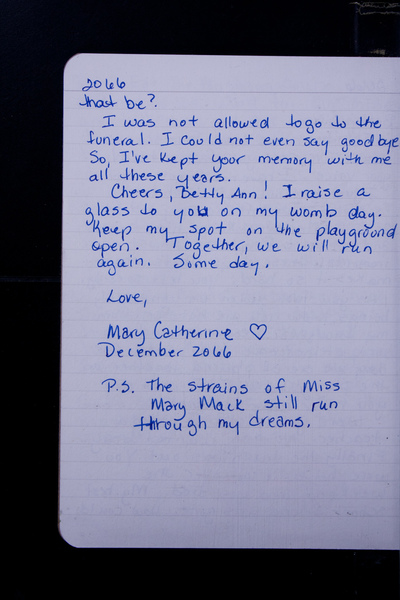 2066
that be?
I was not allowed to go to the
funeral. I could not even say goodbye
So, I've kept your memory with me
all these years.
Cheers, Betty Ann! I raise a
glass to you on my womb day.
Keep my spot on the playground
open. Together, we will run
again. Some day.
Love,
Mary Catherine ♡
December 2066
P.S. The strains of Miss
Mary Mack still run
through my dreams.